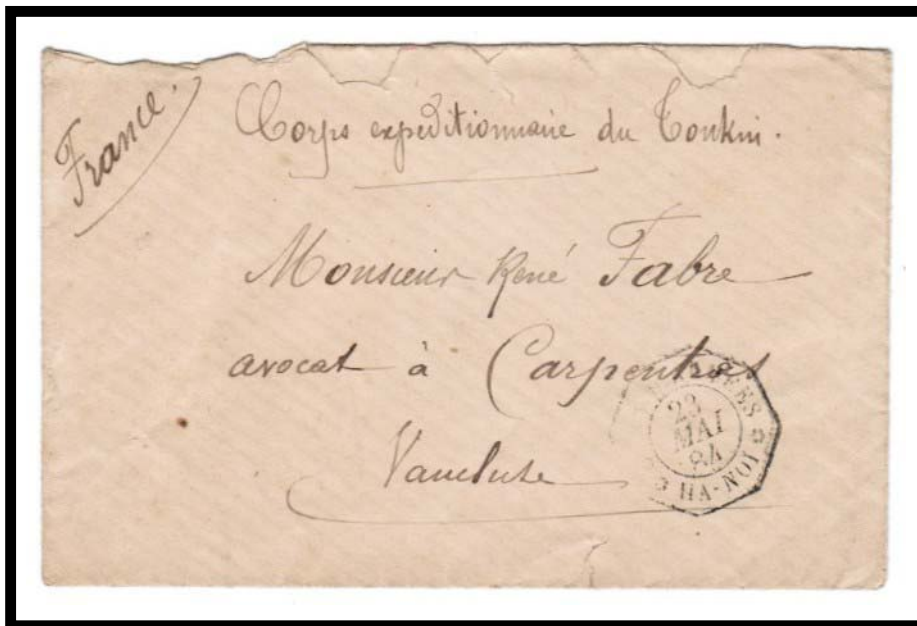 France.
Corps expeditionnaire du Tonkin.
Monsieur René Fabre
avocat à Carpentras
Vaucluse
23
MAI
84
HA-NOI